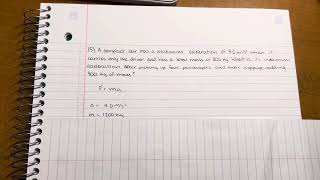 15) A compact car has a maximum acceleration of 4.0 m/s² when it
carries only the driver and has a total mass of 1200 kg. What is its maximum
acceleration after picking up four passengers and their luggage, adding
400 kg of mass?
F = ma
a = 4.0 m/s²
m = 1200 kg